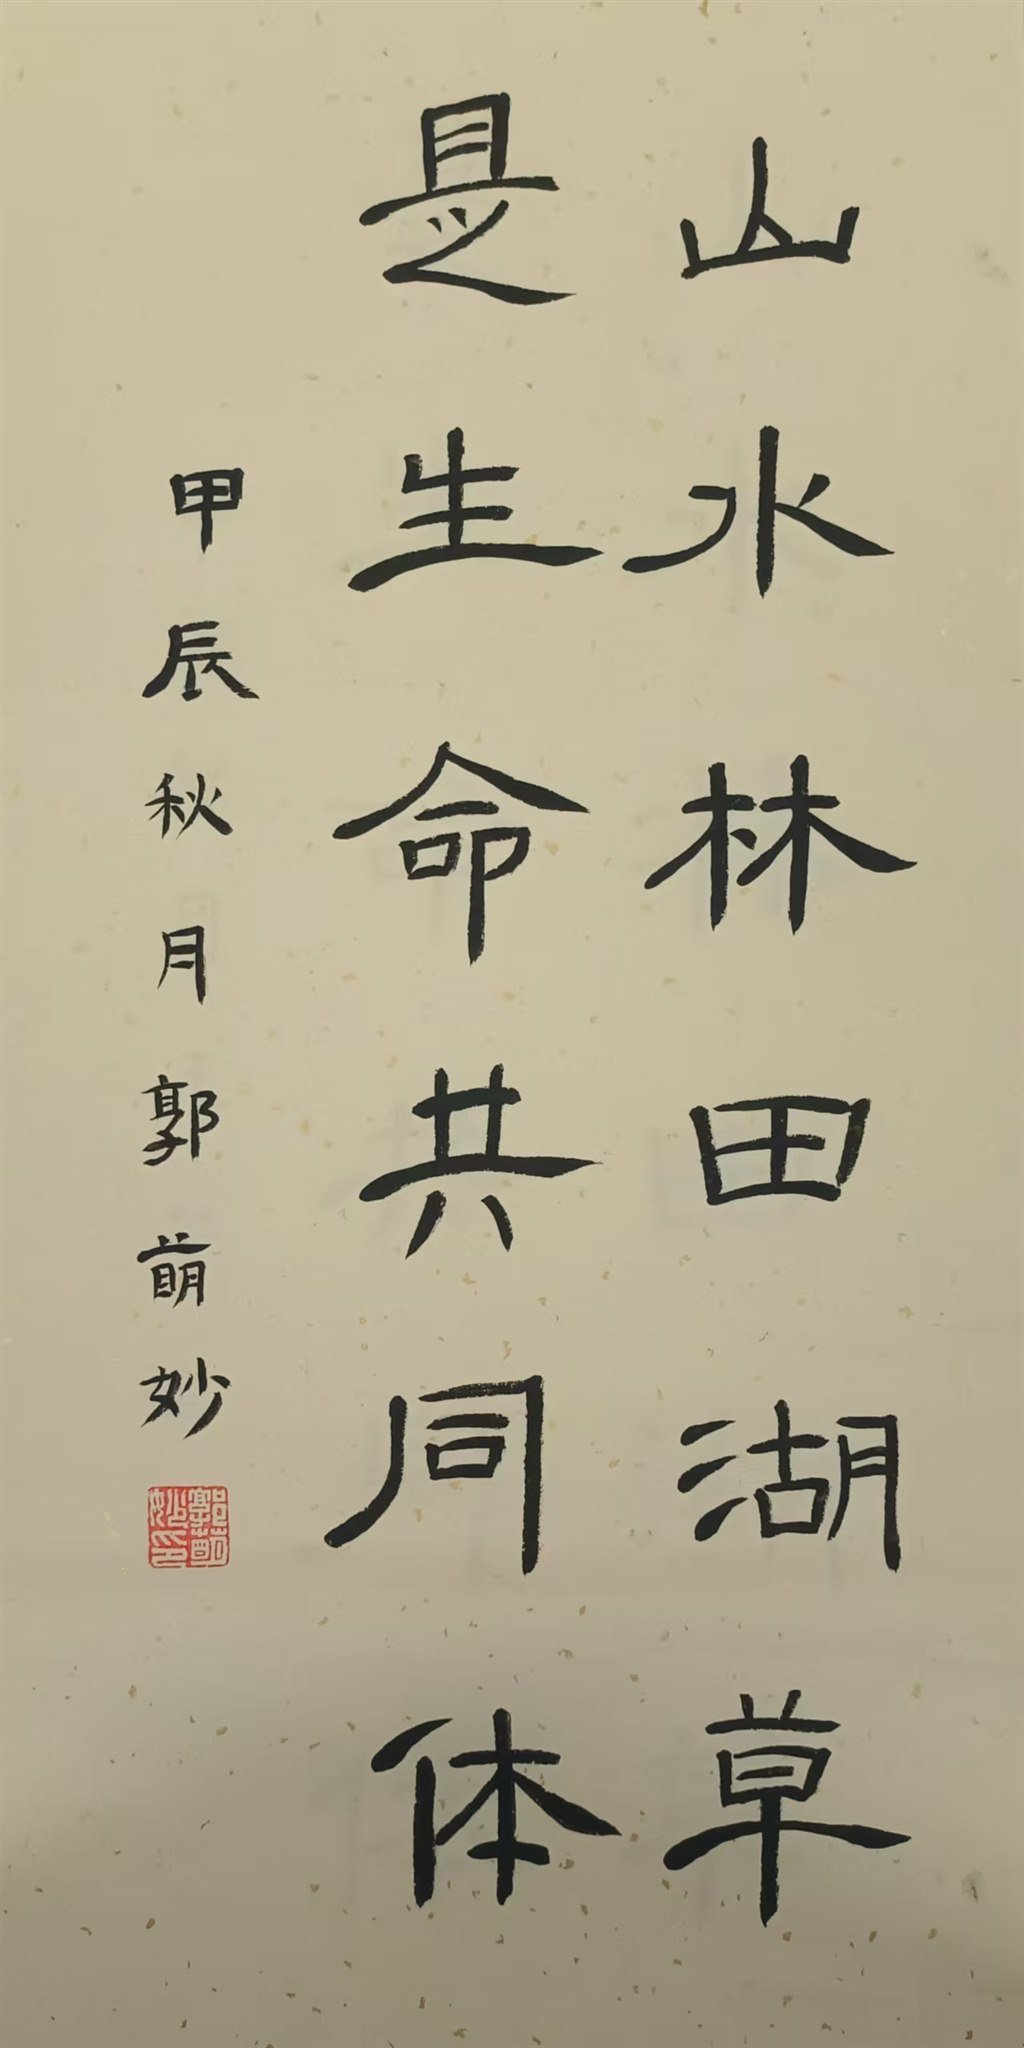 山水林田湖草
是生命共同体
甲辰秋月郭萌妙
郭萌妙印